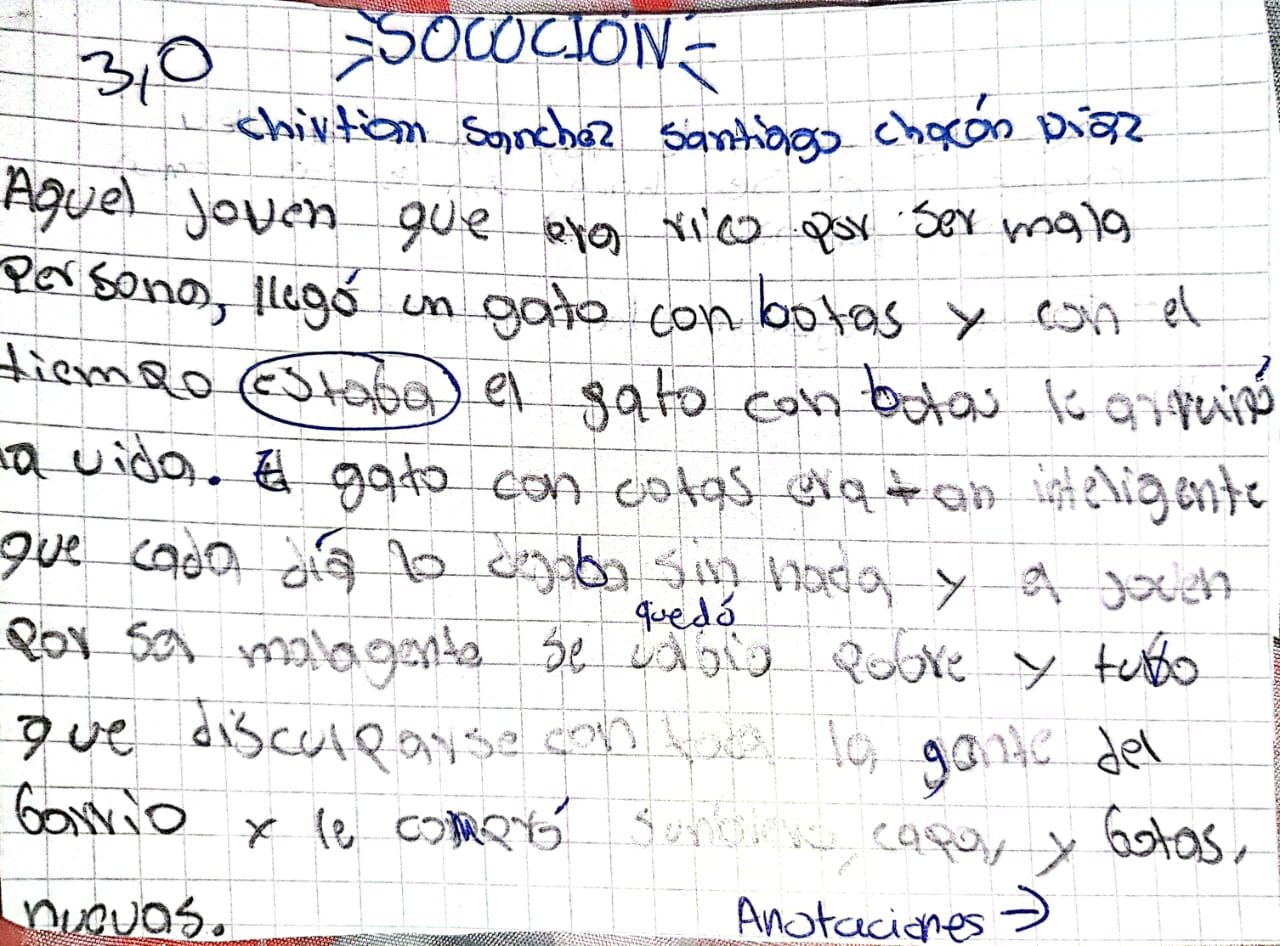 3,0 =SOCUCION=
Chirtian Sanchez Santiago chacón Diaz
Aquel joven que era rico por ser mala
persona, llegó un gato con botas y con el
tiempo estaba el gato con botas le arruinó
la vida. El gato con cotas era tan inteligente
que cada día lo dejaba sin nada y a joven
quedó
por ser malagente se volvio pobre y tubo
que disculparse con toda la gente del
barrio y le compró sombrero, capa, y botas,
nuevas.
Anotaciones →